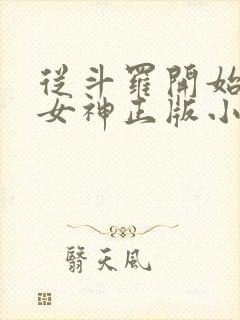 從斗羅開始
女神正版小
翳天風